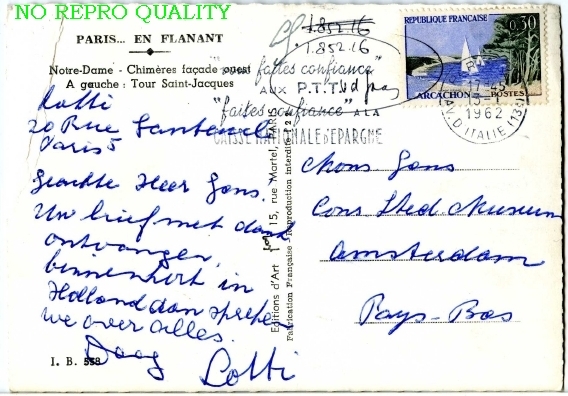 NO REPRO QUALITY
PARIS... EN FLANANT
Notre-Dame - Chimères façade ouest
A gauche : Tour Saint-Jacques
Lotti
20 Rue Santeuil
Paris 5
Geachte Heer Gans.
Uw brief met dank
ontvangen,
binnenkort in
Holland dan spreken
we over alles.
Daag
Lotti
I. B. 558
1.852.16
1.852.16
faites confiance"
AUX P.T.T.
"faites confiance" A LA
CAISSE NATIONALE D'EPARGNE
REPUBLIQUE FRANÇAISE
0,30
ARCACHON POSTES
17-45
1962
AV. D'ITALIE (13)
Editions d'Art 15, rue Martel, PARIS
Fabrication Française - Reproduction interdite
Mons Gans
Cons Sted. Museum
Amsterdam
Pays-Bas